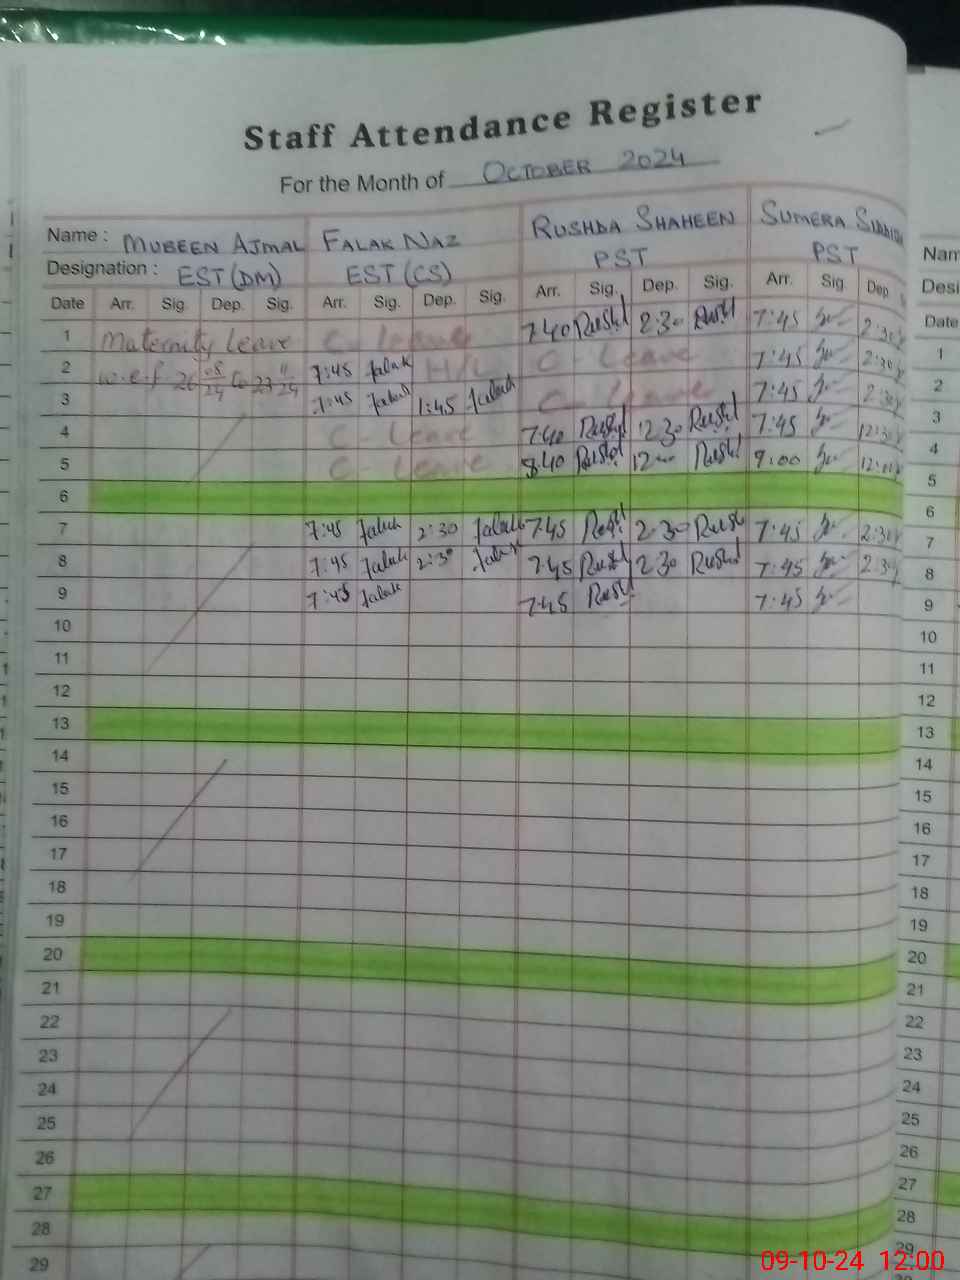 Staff Attendance Register
For the Month of OCTOBER 2024
Name : MUBEEN AJMAL FALAK NAZ RUSHDA SHAHEEN SUMERA
Designation : EST (DM) EST (CS) PST PST
Date Arr. Sig. Dep. Sig. Arr. Sig. Dep. Sig. Arr. Sig. Dep. Sig. Arr. Sig Dep
1 Maternity Leave C- Leave 7:40 Rushd 2:30 Rushd 7:45 2:30
2 w.e.f 26 08 24 to 23 11 24 7:45 Falak H/L C- Leave 7:45 2:30
3 7:45 Falak 1:45 Falak C- Leave 7:45 2:30
4 C- Leave 7:40 Rushd 12:30 Rushd 7:45 12:30
5 C- Leave 8:40 Rushd 12:00 Rushd 9:00 12:00
6
7 7:45 Falak 2:30 Falak 7:45 Rushd 2:30 Rushd 7:45 2:30
8 7:45 Falak 2:30 Falak 7:45 Rushd 2:30 Rushd 7:45 2:30
9 7:45 Falak 7:45 Rushd 7:45
10
11
12
13
14
15
16
17
18
19
20
21
22
23
24
25
26
27
28
29
Nam
Desi
Date
1
2
3
4
5
6
7
8
9
10
11
12
13
14
15
16
17
18
19
20
21
22
23
24
25
26
27
28
29
09-10-24 12:00